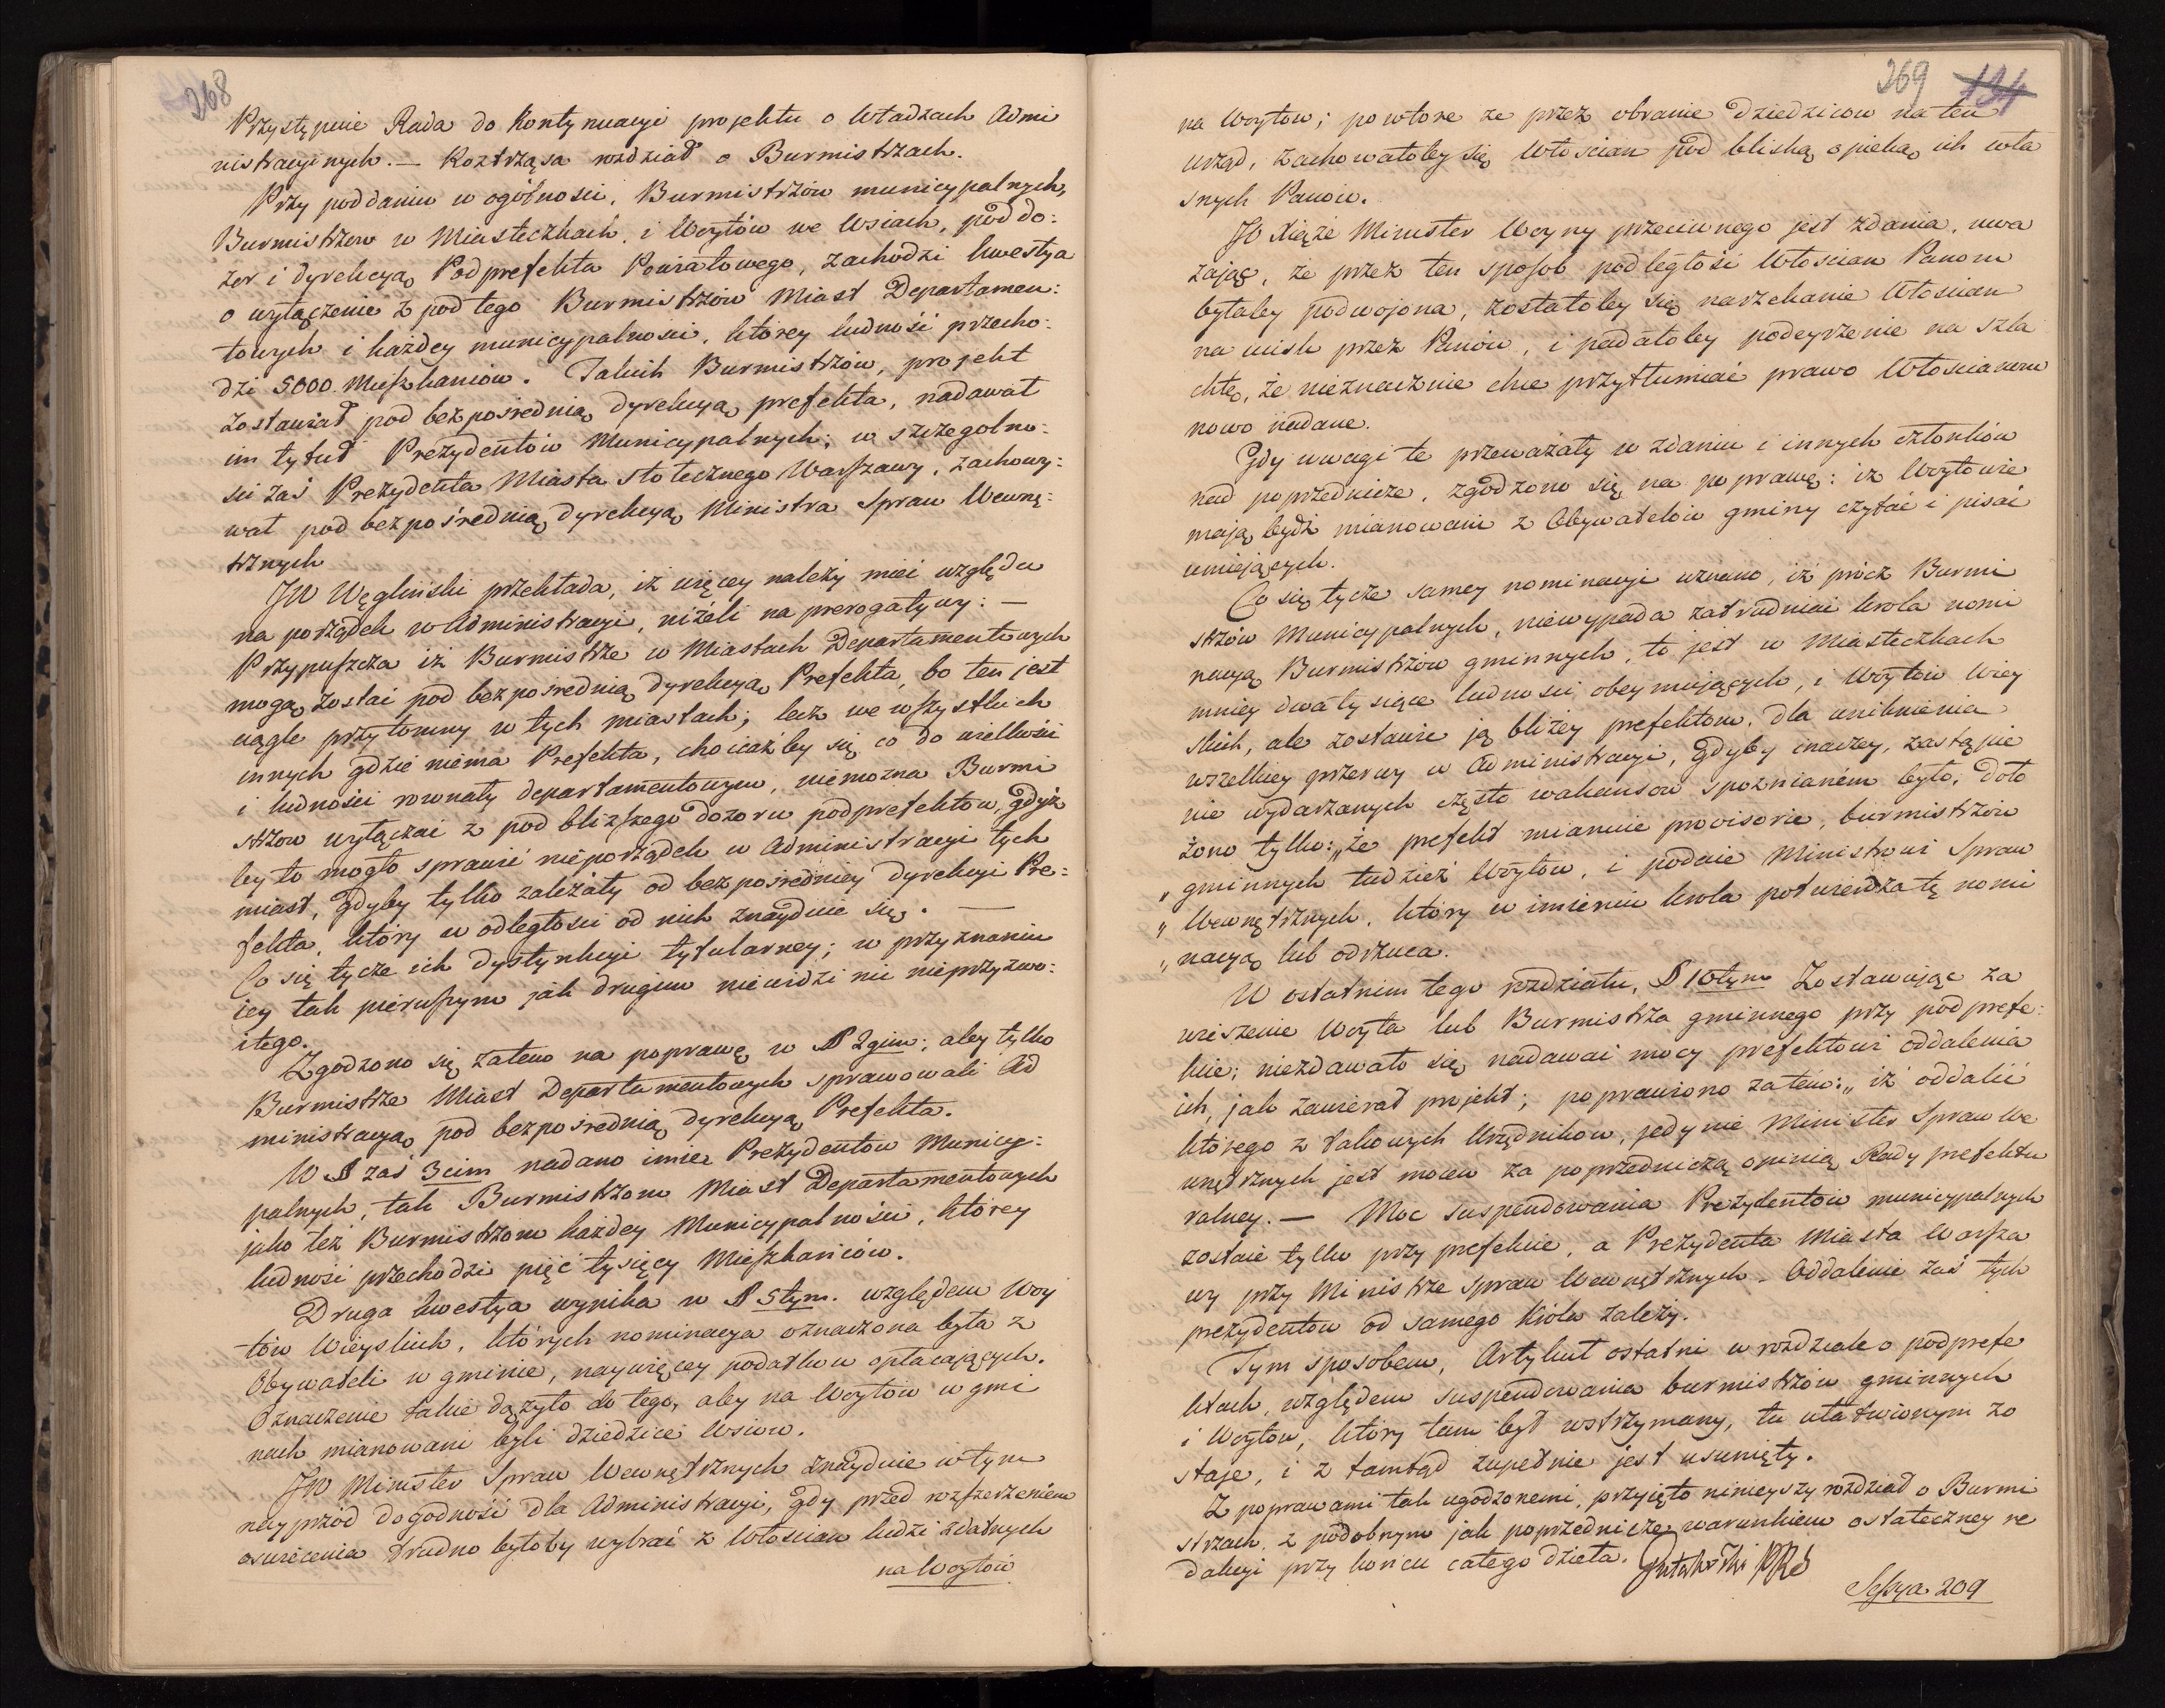 268
Przystępuie Rada do Kontynuacyi projektu o Władzach Admi
nistracyinych. — Roztrząsa rozdział o Burmistrzach.
Przy poddaniu w ogólnosci, Burmistrzów municypalnych,
Burmistrzow w Miasteczkach, i Woytów we Wsiach, pod do:
zor i dyrekcyą Podprefekta Powiatowego, zachodzi kwestya
o wyłączenie z pod tego Burmistrzów Miast Departamen:
towych i każdey municypalnosci, którey ludność przecho:
dzi 5000 Mieszkańców. Takich Burmistrzów, projekt
zostawiał pod bezpośrednią dyrekcyą prefekta, nadawał
im tytuł Prezydentów Municypalnych; w szczegolno:
sci zaś Prezydenta Miasta stołecznego Warszawy, zachowy:
wał pod bezpośrednią dyrekcyą Ministra Spraw Wewnę:
trznych
JW Węgliński przekłada, iż więcey należy mieć względu
na porządek w Administracyi, niżeli na prerogatywy: —
Przypuszcza iż Burmistrze w Miastach Departamentowych
mogą zostać pod bezpośrednią dyrekcyą Prefekta, bo ten jest
ciągle przytomny w tych miastach; lecz we wszystkich
innych gdzie niema Prefekta, chociażby się co do wielkości
i ludności rownały departamentowym, niemożna Burmi
strzow wyłączać z pod bliższego dozoru podprefektow, gdyż
by to mogło sprawić nieporządek w Administracyi tych
miast, gdyby tylko zależały od bezpośredniey dyrekcyi Pre:
fekta, który w odległości od nich znayduie się. —
Co się tycze ich dystynkcyi tytularney; w przyznaniu
iey tak pierwszym jak drugim niewidzi nic nieprzyzwo:
itego.
Zgodzono się zatem na poprawę w § 2gim; aby tylko
Burmistrze Miast Departamentowych sprawowali Ad
ministracyą pod bezpośrednią dyrekcyą Prefekta.
W § zaś 3cim nadano imie Prezydentów Municy:
palnych, tak Burmistrzom Miast Departamentowych
jako też Burmistrzom każdey Municypalności, którey
ludność przechodzi pięć tysięcy Mieszkańców.
Druga kwestya wynika w § 5tym. względem Woy
tów Wieyskich, których nominacya oznaczona była z
Obywateli w gminie, naywięcey podatków opłacaiących.
Oznaczenie takie dążyło do tego, aby na Woytów w gmi
nach mianowani byli dziedzice Wsiow.
JW Minister Spraw Wewnętrznych znayduie w tym
nayprzód dogodność dla Administracyi, gdy przed rozszerzeniem
oswiecenia trudno byłoby wybrać z Włoscian ludzi zdatnych
na Woytów
269 134
na Woytow; powtore ze przez obranie dziedzicow na ten
urząd, zachowałoby się Włościan pod bliską opieką ich wła
snych Panów.
JO Xiąże Minister Woyny przeciwnego jest zdania, uwa
żając, że przez ten sposob podległość Włoscian Panom
byłaby podwojona, zostałoby się narzekanie Włoscian
na ucisk przez Panów, i padałoby podeyrzenie na szla
chtę, że nieznacznie chce przytłumiać prawo Włoscianom
nowo nadane.
Gdy uwagi te przeważały w zdaniu i innych członków
nad poprzednicze, zgodzono się na poprawę: iż Woytowie
mają bydź mianowani z Obywatelów gminy czytać i pisać
umiejących.
Co się tycze samey nominacyi uznano, iż prócz Burmi
strzów Municypalnych, niewypada zatrudniać Krola nomi
nacyą Burmistrzów gminnych, to jest w Miasteczkach
mniey dwa tysiące ludnosci obeymujących, i Woytów Wiey
skich, ale zostawić ją bliżey prefektom, dla uniknienia
wszelkiey przerwy w Administracyi, gdyby inaczey, zastąpie
nie wydarzanych często wakansow spoznianem było, doło
żono tylko: „że prefekt mianuie provisorie, burmistrzów
„gminnych tudzież Woytów, i podaie Ministrowi Spraw
„Wewnętrznych, który w imieniu Krola potwierdza tę nomi
„nacyą lub odrzuca.
W ostatnim tego rozdziału, § 10tym Zostawując za
wieszenie Woyta lub Burmistrza gminnego przy podprefe:
kcie; niezdawało się nadawać mocy prefektowi oddalenia
ich, jak zawierał projekt; poprawiono zatem: „iż oddalić
którego z takowych Urzędnikow, jedynie Minister Spraw We
wnętrznych jest mocen za poprzedniczą opinią Rady prefektu
ralney. — Moc suspendowania Prezydentów municypalnych
zostaie tylko przy prefekcie, a Prezydenta Miasta Warsza
wy przy Ministrze Spraw Wewnętrznych. Oddalenie zaś tych
prezydentow od samego Króla zależy.
Tym sposobem, Artykuł ostatni w rozdziale o podprefe
ktach, względem suspendowania burmistrzów gminnych
i Woytow, który tam był wstrzymany, tu ułatwionym zo
staje, i z tamtąd zupełnie jest usunięty.
Z poprawami tak ugodzonemi, przyięto ninieyszy rozdział o Burmi
strzach, z podobnym jak poprzednicze warunkiem ostateczney re
dakcyi przy końcu całego dzieła.
Sessya 209